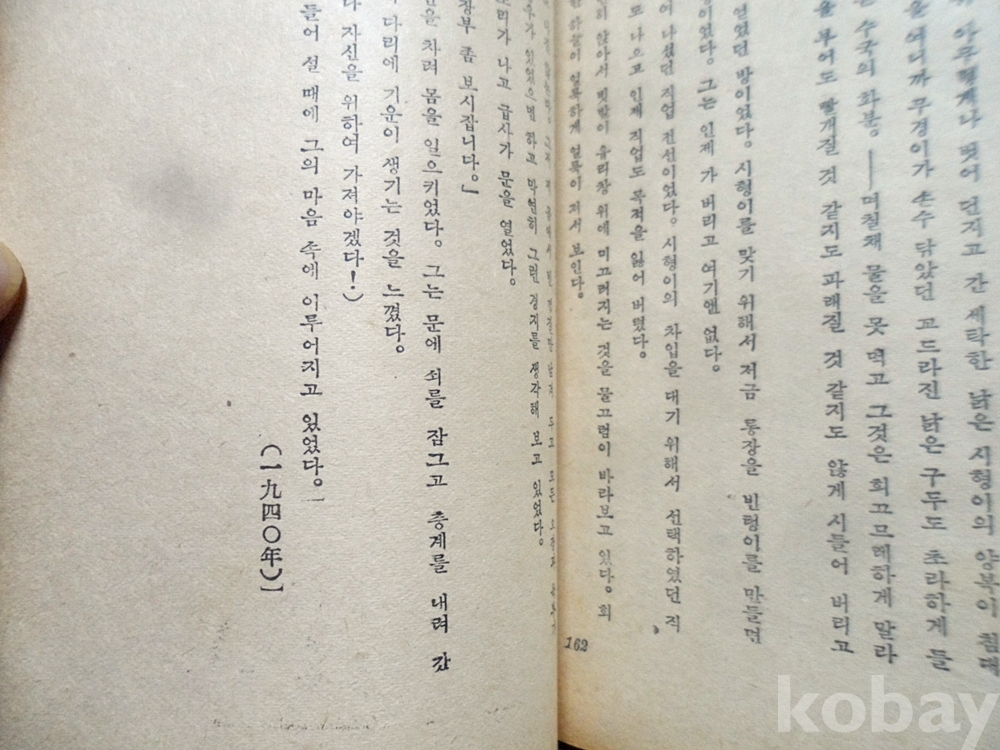 아무렇게나 벗어 던지고 간 세탁한 낡은 시형이의 양복이 침대
을 여니까 무경이가 손수 닦았던 고드라진 낡은 구두도 초라하게 들
수국의 화분. ――며칠채 물을 못 먹고 그것은 희끄므레하게 말라
을 부어도 빨개질 것 같지도 파래질 것 같지도 않게 시들어 버리고
였던 방이었다. 시형이를 맞기 위해서 저금 통장을 빈텅이를 만들면
이었다. 그는 인제 가 버리고 여기엔 없다.
여 나섰던 직업 전선이었다. 시형이의 차입을 대기 위해서 선택하였던 직
도 나으고 인제 직업도 목적을 잃어 버렸다.
히 앉아서 빗발이 유리창 위에 미끄러지는 것을 물끄럼이 바라보고 있다. 회
하늘이 얼룩하게 얼룩이 져서 보인다.
162
있었으면 하고 막연히 그런 경지를 생각해 보고 있었다.
소리가 나고 급사가 문을 열었다.
장부 좀 보시잡니다.」
을 차려 몸을 일으키었다. 그는 문에 쇠를 잠그고 층계를 내려 갔
다리에 기운이 생기는 것을 느꼈다.
나 자신을 위하여 가져야겠다!)
들어 설 때에 그의 마음 속에 이루어지고 있었다.
(一九四〇年)】
kobay